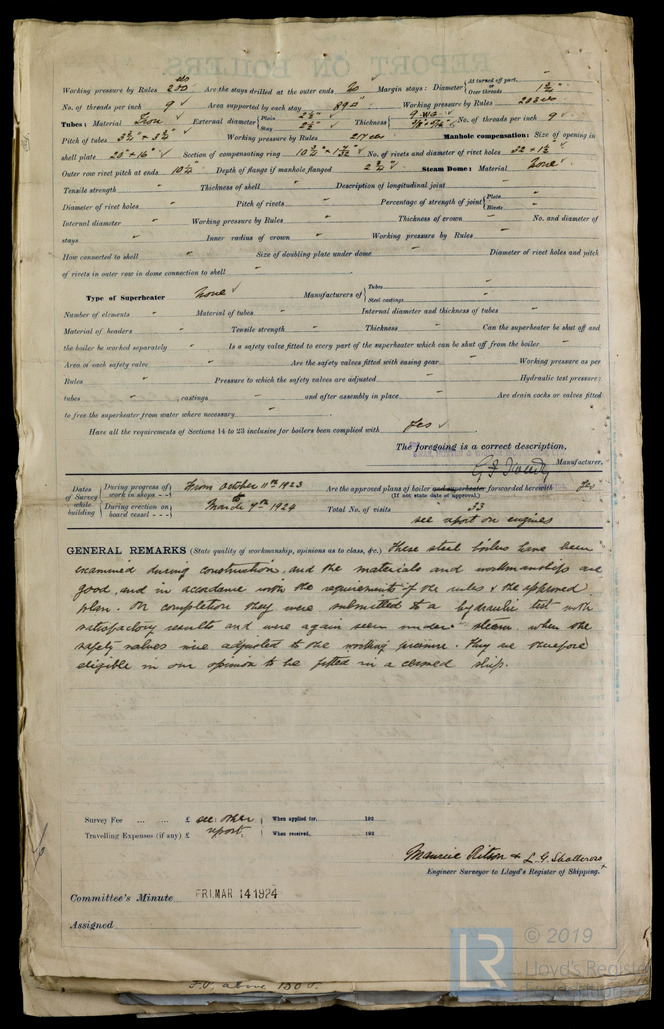 REPORT ON BOILERS.
Working pressure by Rules 200 lbs Are the stays drilled at the outer ends No Margin stays: Diameter {At turned off part, or Over threads 1 3/4"
No. of threads per inch 9 ✓ Area supported by each stay 89 □" Working pressure by Rules 203 lbs
Tubes: Material Iron ✓ External diameter {Plain 2 1/2" Stay 2 1/2" ✓ Thickness { 9 W.G. No. of threads per inch 9 ✓
Pitch of tubes 3 3/4" × 3 3/4" ✓ Working pressure by Rules 217 lbs Manhole compensation: Size of opening in
shell plate 20" × 16" ✓ Section of compensating ring No. of rivets and diameter of rivet holes
Outer row rivet pitch at ends 10 1/4" Depth of flange if manhole flanged 2 3/4" ✓ Steam Dome: Material None ✓
Tensile strength " Thickness of shell " Description of longitudinal joint "
Diameter of rivet holes " Pitch of rivets " Percentage of strength of joint {Plate " Rivets "
Internal diameter " Working pressure by Rules " Thickness of crown " No. and diameter of
stays " Inner radius of crown " Working pressure by Rules "
How connected to shell " Size of doubling plate under dome " Diameter of rivet holes and pitch
of rivets in outer row in dome connection to shell "
Type of Superheater None ✓ Manufacturers of {Tubes " Steel castings "
Number of elements " Material of tubes " Internal diameter and thickness of tubes "
Material of headers " Tensile strength " Thickness " Can the superheater be shut off and
the boiler be worked separately " Is a safety valve fitted to every part of the superheater which can be shut off from the boiler "
Area of each safety valve " Are the safety valves fitted with easing gear " Working pressure as per
Rules " Pressure to which the safety valves are adjusted " Hydraulic test pressure:
tubes " castings " and after assembly in place " Are drain cocks or valves fitted
to free the superheater from water where necessary "
Have all the requirements of Sections 14 to 23 inclusive for boilers been complied with Yes ✓
The foregoing is a correct description,
Manufacturer.
Dates of Survey while building {During progress of work in shops - - From October 11th 1923 Are the approved plans of boiler and superheater forwarded herewith Yes
(If not state date of approval.)
{During erection on board vessel - - - to March 9th 1924 Total No. of visits 33
see report on engines
GENERAL REMARKS (State quality of workmanship, opinions as to class, &c.) These steel boilers have been
examined during construction, and the materials and workmanship are
good, and in accordance with the requirements of the rules & the approved
plan. On completion they were submitted to a hydraulic test with
satisfactory results and were again seen under steam when the
safety valves were adjusted to the working pressure. They are therefore
eligible in our opinion to be fitted in a classed ship.
Survey Fee ... ... £ see other When applied for, 192
Travelling Expenses (if any) £ report. When received, 192
Maurice Ritson & L. G. Shallcross
Engineer Surveyor to Lloyd's Register of Shipping.
Committee's Minute FRI. MAR 14 1924
Assigned
LR © 2019
Lloyd's Register
Foundation